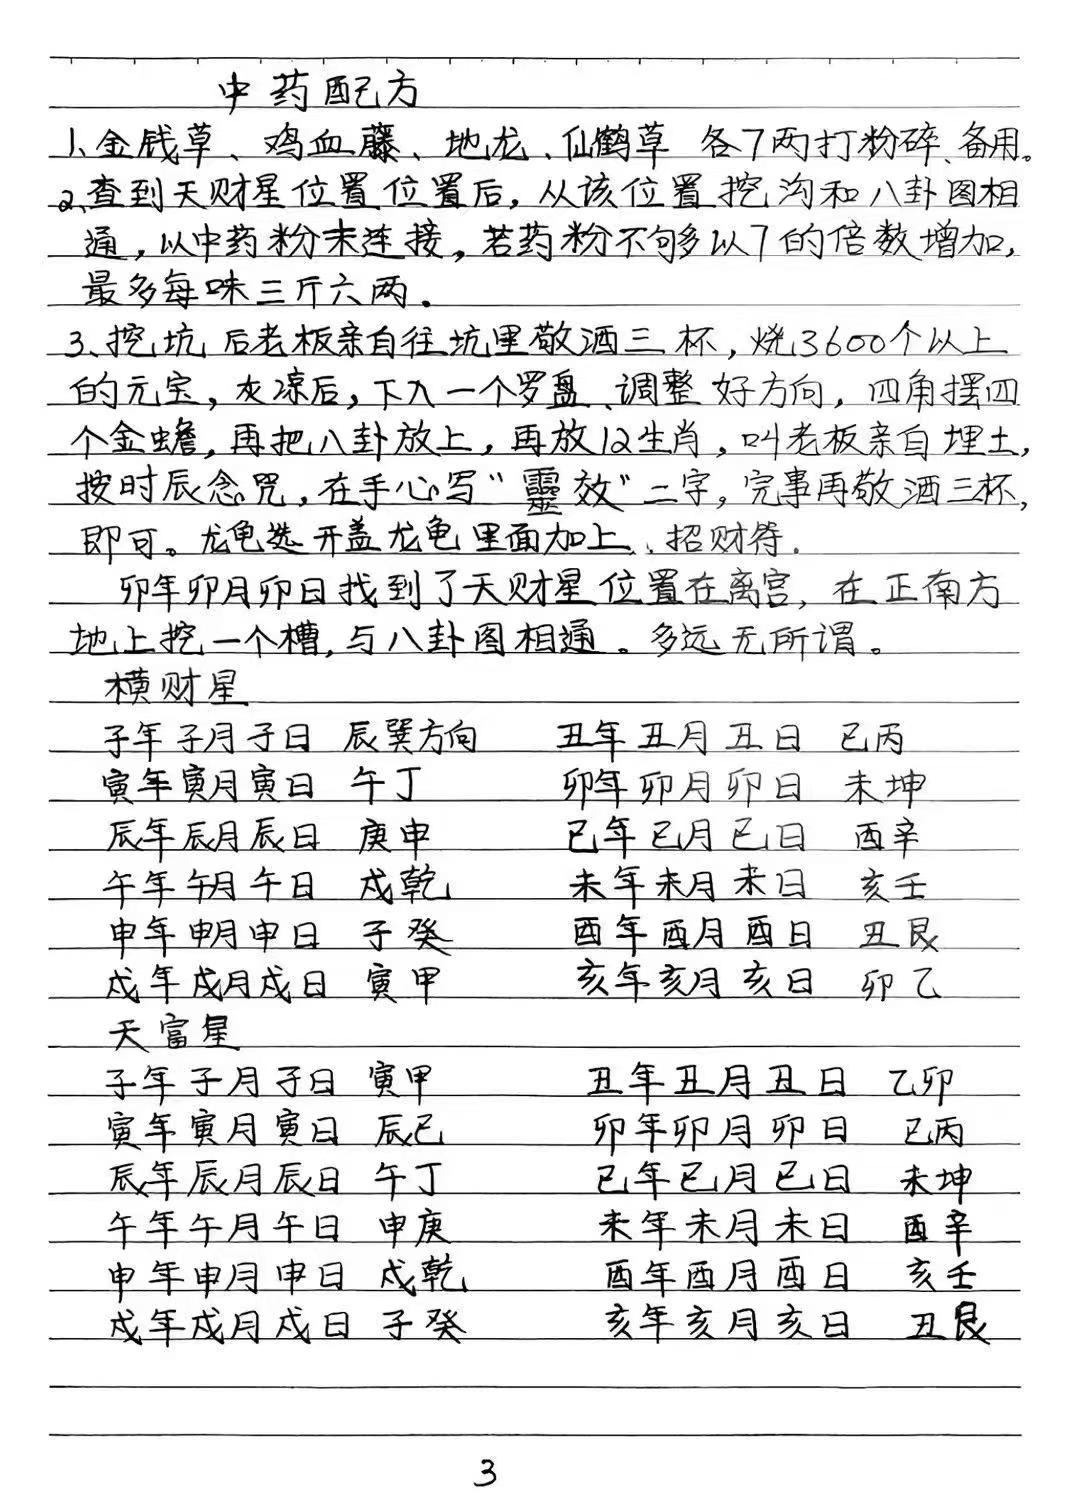 中药配方
1、金钱草、鸡血藤、地龙、仙鹤草 各7两打粉碎、备用。
2、查到天财星位置位置后，从该位置挖沟和八卦图相
通，以中药粉末连接。若药粉不够多以7的倍数增加，
最多每味三斤六两。
3、挖坑后老板亲自往坑里敬酒三杯，烧3600个以上
的元宝，灰凉后，下入一个罗盘、调整好方向，四角摆四
个金蟾，再把八卦放上，再放12生肖，叫老板亲自埋土，
按时辰念咒，在手心写“靈效”二字，完事再敬酒三杯，
即可。龙龟选开盖龙龟里面加上、招财符.
卯年卯月卯日找到了天财星位置在离宫，在正南方
地上挖一个槽，与八卦图相通。多远无所谓。
横财星
子年子月子日 辰巽方向 丑年丑月丑日 巳丙
寅年寅月寅日 午丁 卯年卯月卯日 未坤
辰年辰月辰日 庚申 巳年巳月巳日 酉辛
午年午月午日 戍乾 未年未月未日 亥壬
申年申月申日 子癸 酉年酉月酉日 丑艮
戍年戍月戍日 寅甲 亥年亥月亥日 卯乙
天富星
子年子月子日 寅甲 丑年丑月丑日 乙卯
寅年寅月寅日 辰巳 卯年卯月卯日 巳丙
辰年辰月辰日 午丁 巳年巳月巳日 未坤
午年午月午日 申庚 未年未月未日 酉辛
申年申月申日 戍乾 酉年酉月酉日 亥壬
戍年戍月戍日 子癸 亥年亥月亥日 丑艮
3